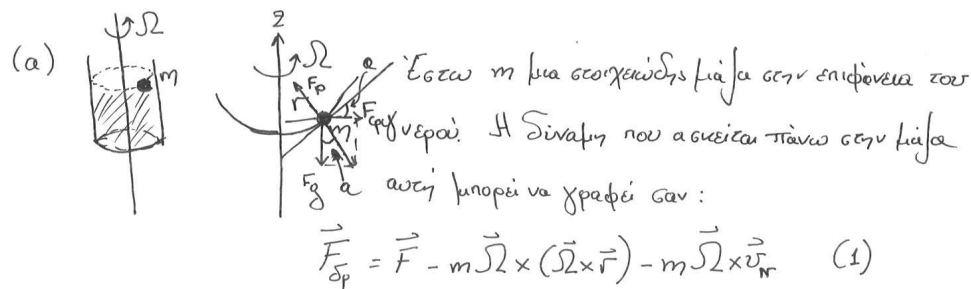 (a) Ω m z Ω a F_p r F_φυγ m F_g a
Έστω m μια στοιχειώδης μάζα στην επιφάνεια του
νερού. Η δύναμη που ασκείται πάνω στην μάζα
αυτή μπορεί να γραφεί σαν:
\vec{F}_{δρ} = \vec{F} - m\vec{Ω} × (\vec{Ω}×\vec{r}) - m\vec{Ω}×\vec{v}_r (1)